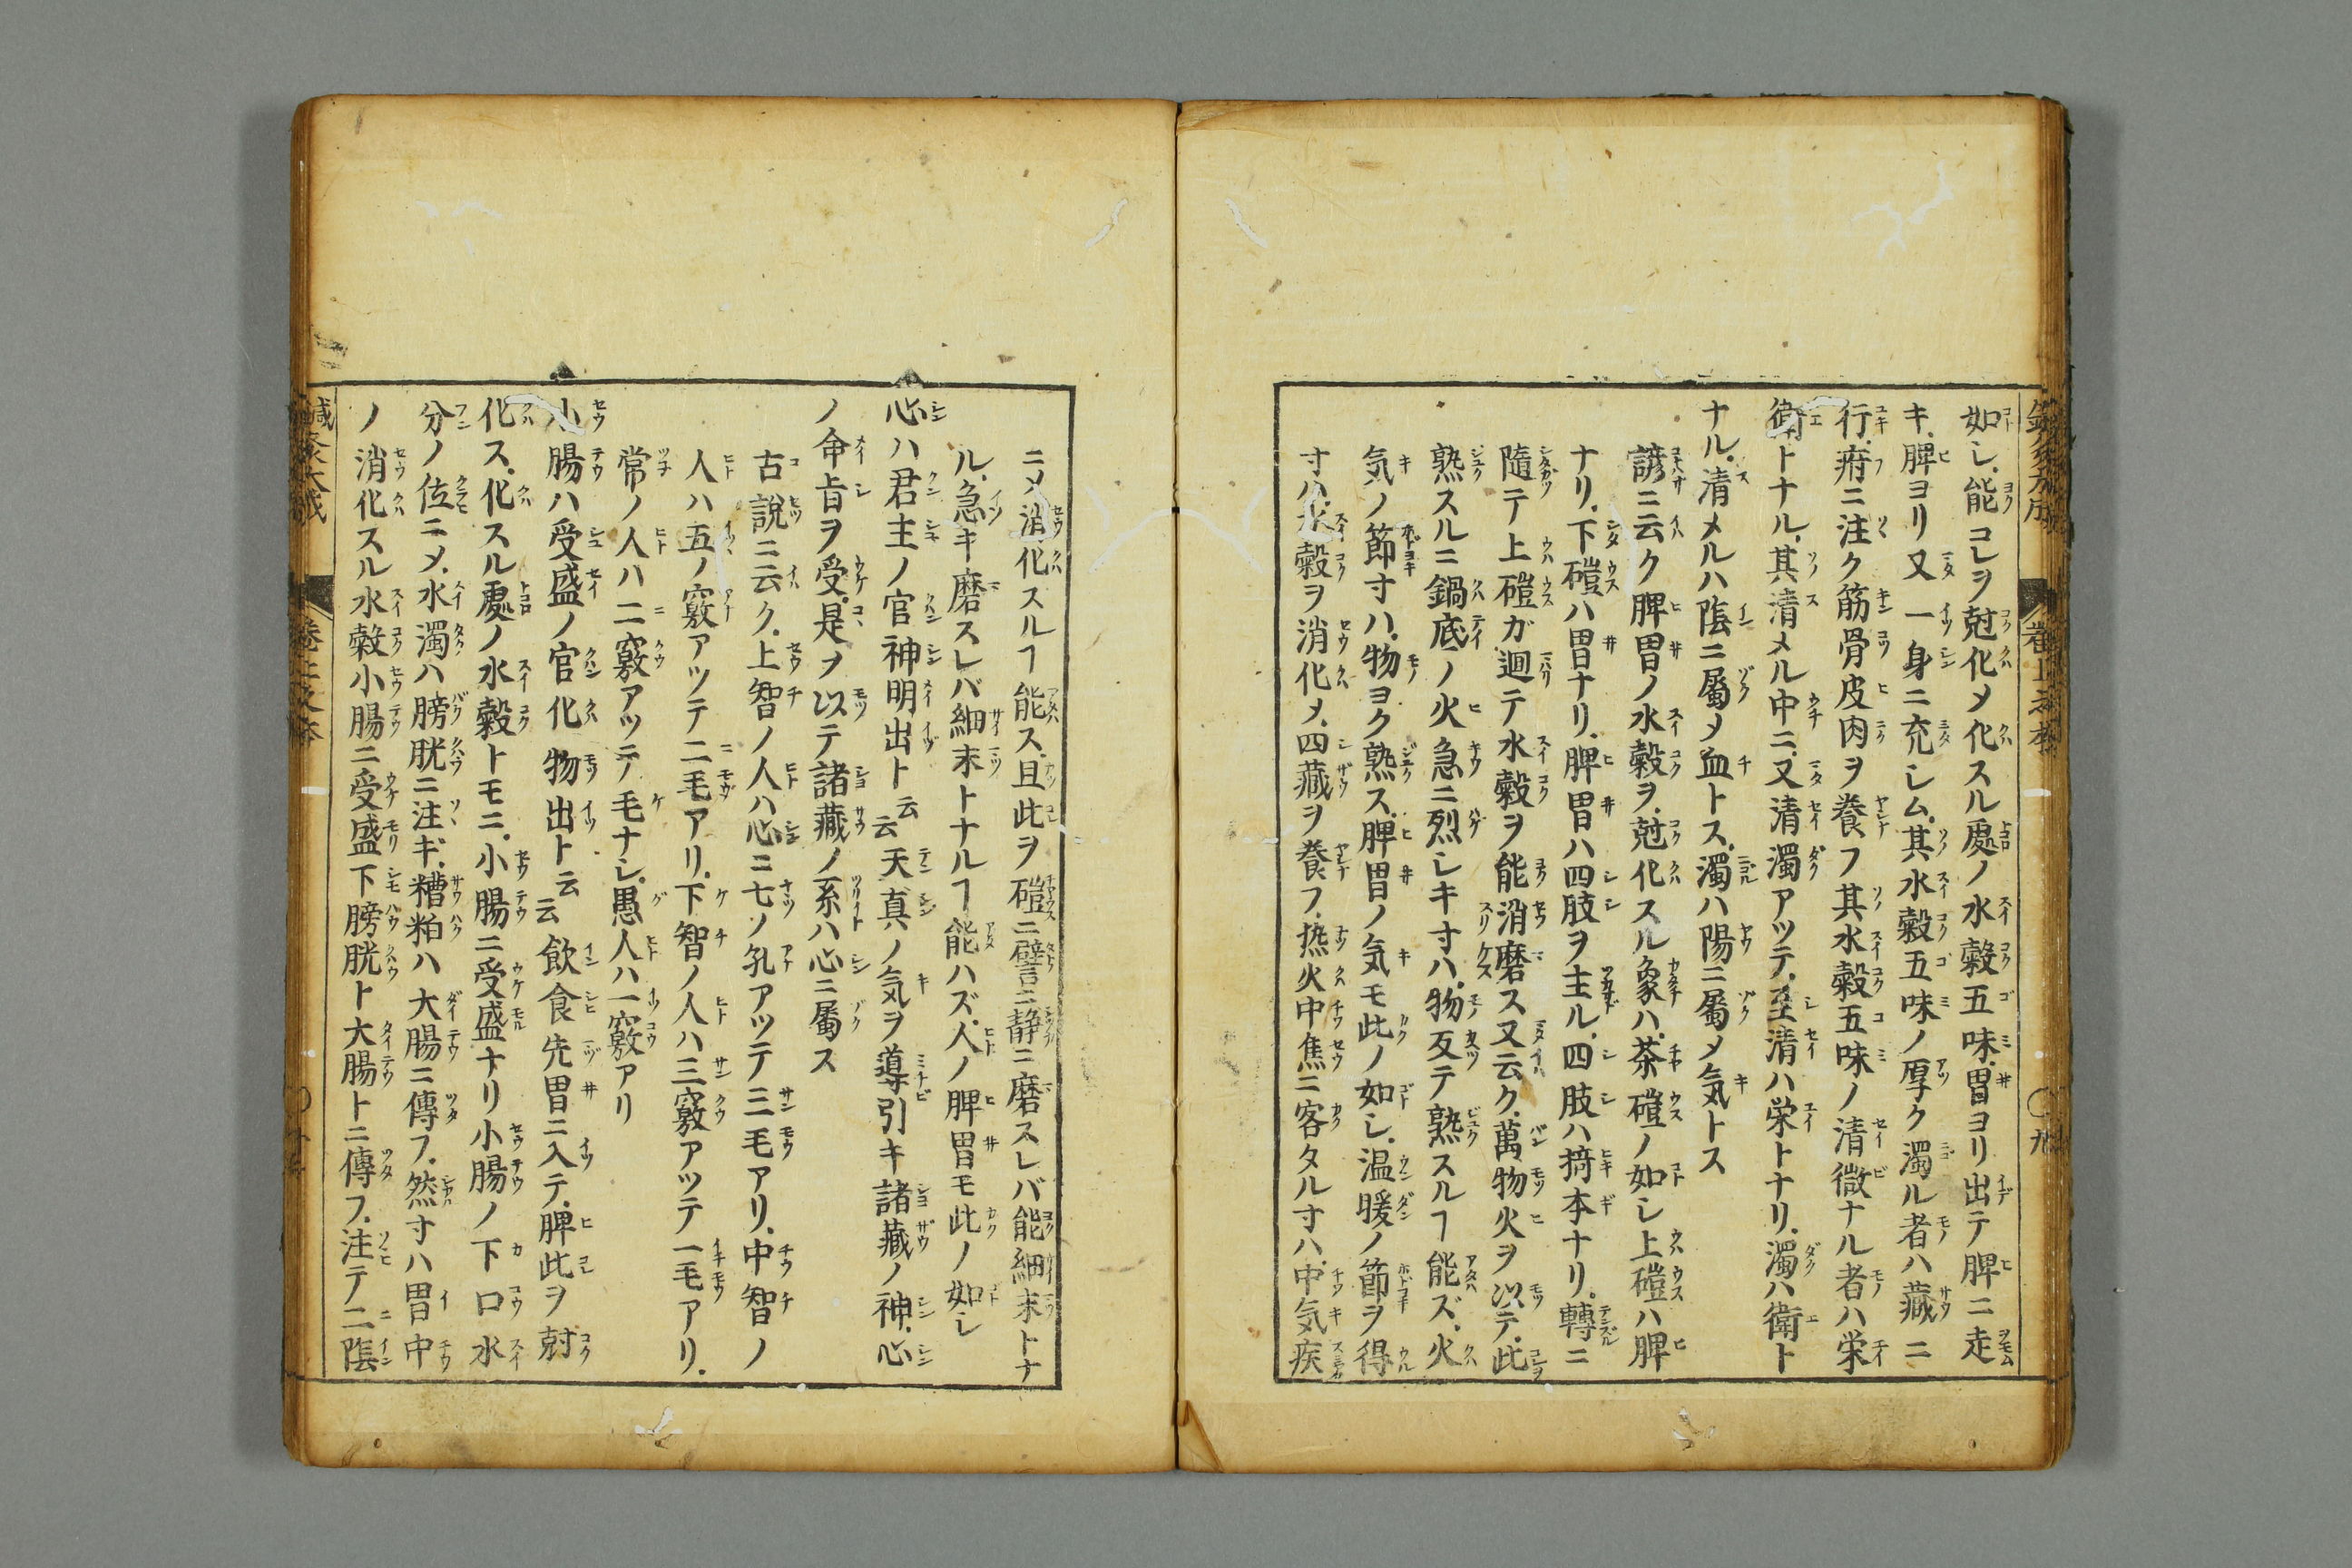 如シ.能コレヲ尅化メ化スル處ノ水穀五味.胃ヨリ出テ脾ニ走
キ.脾ヨリ又一身ニ充シム.其水穀五味ノ厚ク濁ル者ハ藏ニ
行.府ニ注ク筋骨皮肉ヲ養フ其水穀五味ノ清微ナル者ハ栄
衛トナル.其清メル中ニ.又清濁アツテ.至清ハ栄トナリ.濁ハ衛ト
ナル.清メルハ陰ニ屬メ血トス.濁ハ陽ニ屬メ気トス
諺ニ云ク脾胃ノ水穀ヲ.尅化スル象ハ.茶磑ノ如シ上磑ハ脾
ナリ.下磑ハ胃ナリ.脾胃ハ四肢ヲ主ル.四肢ハ掎本ナリ.轉ニ
隨テ上磑ガ廻テ水穀ヲ能消磨ス又云ク.萬物火ヲ以テ.此
熟スルニ鍋底ノ火急ニ烈シキ寸ハ.物反テ熟スルヿ能ズ.火
気ノ節寸ハ.物ヨク熟ス.脾胃ノ気モ此ノ如シ.温暖ノ節ヲ得
寸ハ.水穀ヲ消化メ.四藏ヲ養フ.熱火中焦ニ客タル寸ハ.中気疾
ニメ消化スルヿ能ス.且此ヲ磑ニ譬ニ静ニ磨スレバ能細末トナ
ル.急キ磨スレバ細末トナルヿ能ハズ.人ノ脾胃モ此ノ如シ
心ハ君主ノ官神明出ト云云天真ノ気ヲ導引キ諸藏ノ神.心
ノ命旨ヲ受.是ヲ以テ諸藏ノ系ハ心ニ屬ス
古說ニ云ク.上智ノ人ハ心ニ七ツ孔アツテ三毛アリ.中智ノ
人ハ五ノ竅アツテ二毛アリ.下智ノ人ハ三竅アツテ一毛アリ.
常ノ人ハ二竅アツテ毛ナシ.愚人ハ一竅アリ
小腸ハ受盛ノ官化物出ト云云飲食先胃ニ入テ.脾此ヲ尅
化ス.化スル處ノ水穀トモニ.小腸ニ受盛ナリ小腸ノ下口水
分ノ位ニメ.水濁ハ膀胱ニ注ギ.糟粕ハ大腸ニ傳フ.然寸ハ胃中
ノ消化スル水穀小腸ニ受盛下膀胱ト大腸トニ傳フ.注テ二陰